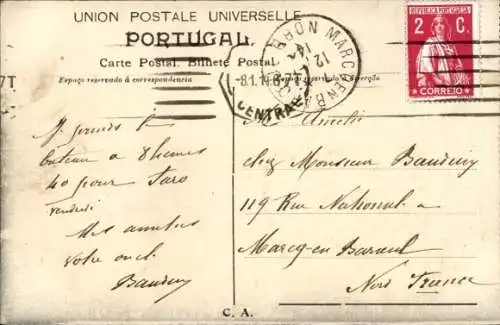 UNION POSTALE UNIVERSELLE
PORTUGAL
Carte Postal. Bilhete Postal
Espaço reservado á correspondencia
REPUBLICA PORTUGUESA
2 C.
CORREIO
MARCQ-EN-BARŒUL
NORD
CENTRAL
Je prends le
bateau à 8 heures
40 pour Faro
vendredi
Mes amitiés
votre oncle
Bauduin
Amélie
chez Monsieur Bauduin
119 Rue Nationale à
Marcq-en Baroeul
Nord France
C. A.